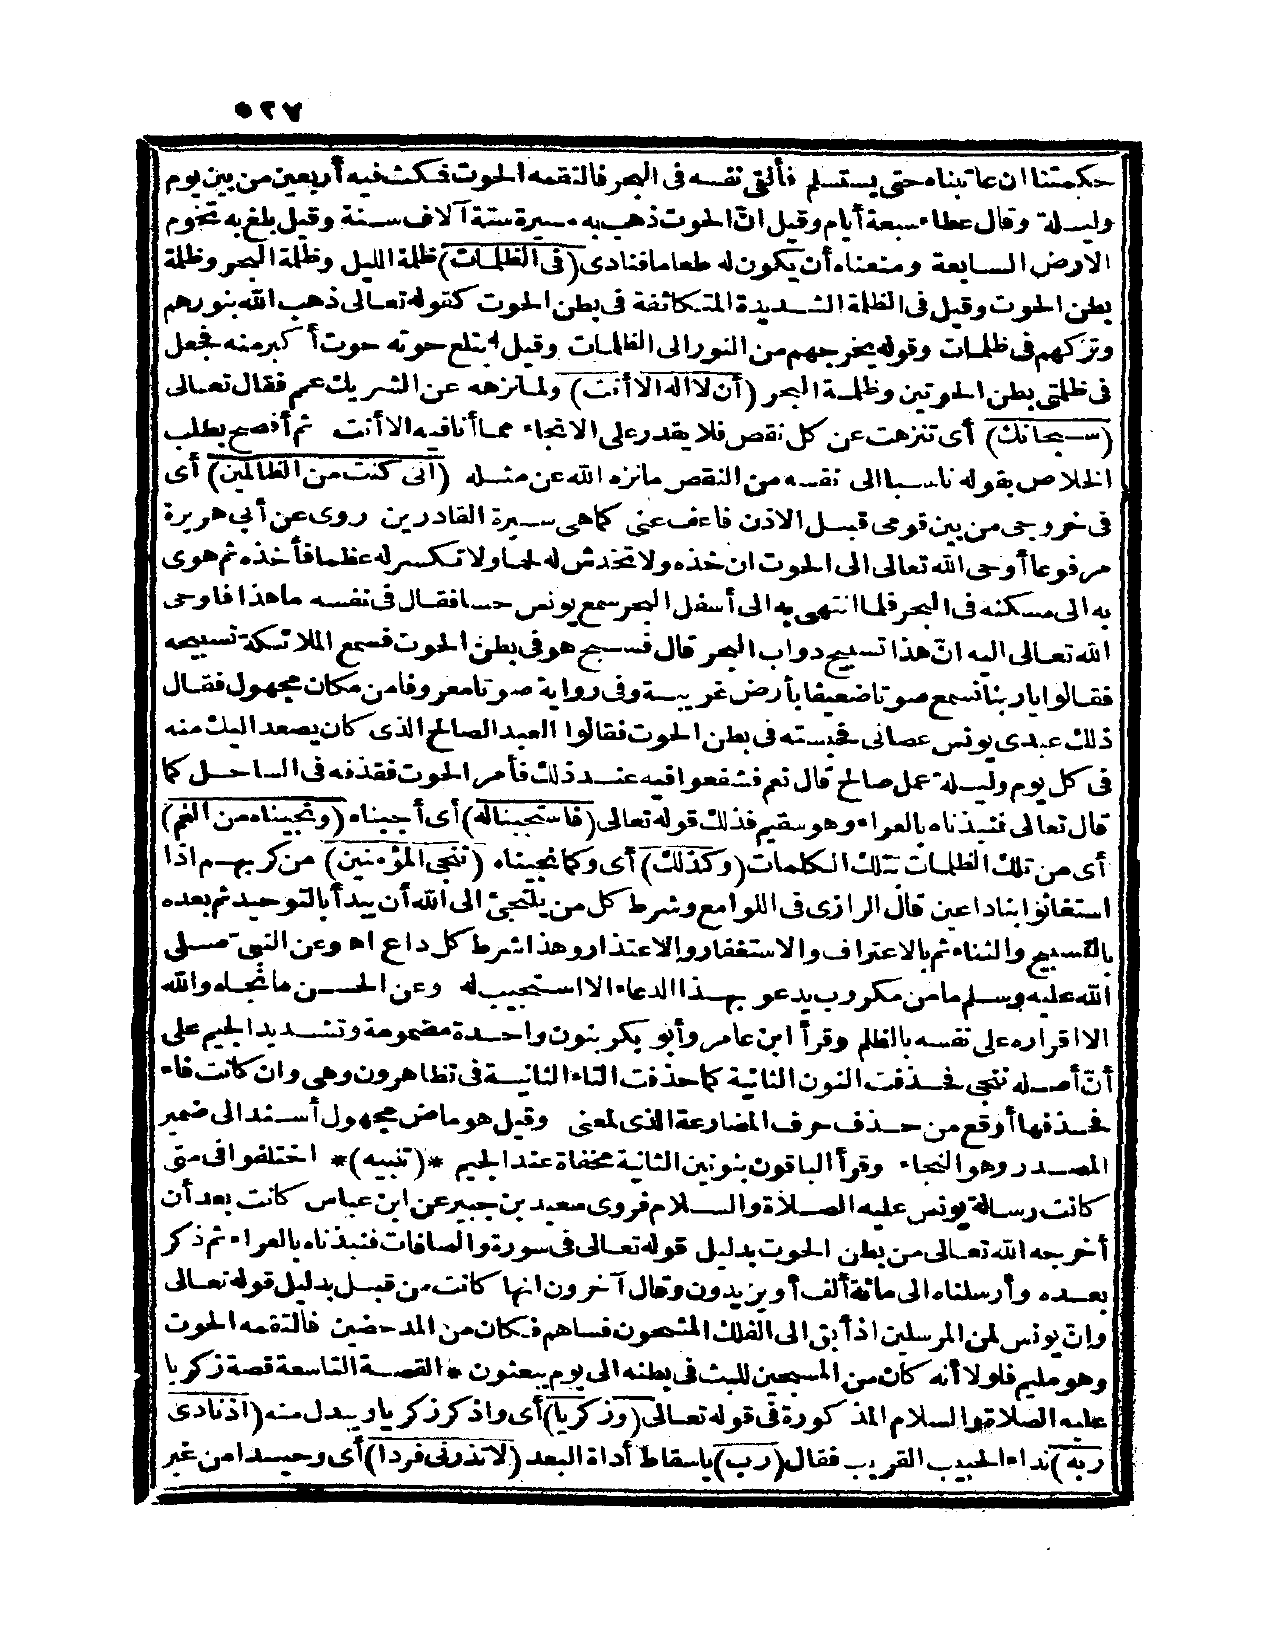 ٥٢٧
حكمتنا ان عاتبناه حتى يستسلم فألقى نفسه فى البحر فالتقمه الحوت فمكث فيه أربعين من بين يوم
وليلة وقال عطاء سبعة أيام وقيل انّ الحوت ذهب به مسيرة ستة آلاف سنة وقيل بلغ به تخوم
الارض السابعة ومنعناه أن يكون له طعاما فنادى (فى الظلمات) ظلمة الليل وظلمة البحر وظلمة
بطن الحوت وقيل فى الظلمة الشديدة المتكاثفة فى بطن الحوت كقوله تعالى ذهب الله بنورهم
وتركهم فى ظلمات وقوله يخرجهم من النور الى الظلمات وقيل ابتلع حوته حوت أكبر منه فجعل
فى ظلمتى بطن الحوتين وظلمة البحر (أن لا اله الا أنت) ولما نزهه عن الشريك عم فقال تعالى
(سبحانك) أى تنزهت عن كل نقص فلا يقدر على الانجاء مما أنا فيه الا أنت ثم أفصح بطلب
الخلاص بقوله ناسبا الى نفسه من النقص ما نزه الله عن مثله (انى كنت من الظالمين) أى
فى خروجى من بين قومى قبل الاذن فاعف عنى كما هى سيرة القادرين روى عن أبى هريرة
مرفوعا أوحى الله تعالى الى الحوت ان خذه ولا تخدش له لحما ولا تكسر له عظما فأخذه ثم هوى
به الى مسكنه فى البحر فلما انتهى به الى أسفل البحر سمع يونس حسا فقال فى نفسه ما هذا فاوحى
الله تعالى اليه انّ هذا تسبيح دواب البحر قال فسبح هو فى بطن الحوت فسمع الملائكة تسبيحه
فقالوا يا ربنا نسمع صوتا ضعيفا بأرض غريبة وفى رواية صوتا معروفا من مكان مجهول فقال
ذلك عبدى يونس عصانى فحبسته فى بطن الحوت فقالوا العبد الصالح الذى كان يصعد اليك منه
فى كل يوم وليلة عمل صالح قال نعم فشفعوا فيه عند ذلك فأمر الحوت فقذفه فى الساحل كما
قال تعالى فنبذناه بالعراء وهو سقيم فذلك قوله تعالى (فاستجبنا له) أى أجبناه (ونجيناه من الغم)
أى من تلك الظلمات بتلك الكلمات (وكذلك) أى وكما نجيناه (ننجى المؤمنين) من كربهم اذا
استغاثوا بنا داعين قال الرازى فى اللوامع وشرط كل من يلتجئ الى الله أن يبدأ بالتوحيد ثم بعده
بالتسبيح والثناء ثم بالاعتراف والاستغفار والاعتذار وهذا شرط كل داع اه وعن النبىّ صلى
الله عليه وسلم ما من مكروب يدعو بهذا الدعاء الا استجيب له وعن الحسن ما نجاه والله
الا اقراره على نفسه بالظلم وقرأ ابن عامر وأبو بكر بنون واحدة مضمومة وتشديد الجيم على
أنّ أصله ننجى فحذفت النون الثانية كما حذفت التاء الثانية فى تظاهرون وهى وان كانت فاء
فحذفها أوقع من حذف حرف المضارعة الذى لمعنى وقيل هو ماض مجهول أسند الى ضمير
المصدر وهو النجاء وقرأ الباقون بنونين الثانية مخفاة عند الجيم *(تنبيه)* اختلفوا فى متى
كانت رسالة يونس عليه الصلاة والسلام فروى سعيد بن جبير عن ابن عباس كانت بعد أن
أخرجه الله تعالى من بطن الحوت بدليل قوله تعالى فى سورة والصافات فنبذناه بالعراء ثم ذكر
بعده وأرسلناه الى مائة ألف أو يزيدون وقال آخرون انها كانت من قبل بدليل قوله تعالى
وانّ يونس لمن المرسلين اذ أبق الى الفلك المشحون فساهم فكان من المدحضين فالتقمه الحوت
وهو مليم فلولا أنه كان من المسبحين للبث فى بطنه الى يوم يبعثون * القصة التاسعة قصة زكريا
عليه الصلاة والسلام المذكورة فى قوله تعالى (وزكريا) أى واذكر زكريا ويبدل منه (اذ نادى
ربه) نداء الحبيب القريب فقال (رب) باسقاط أداة البعد (لا تذرنى فردا) أى وحيدا من غير